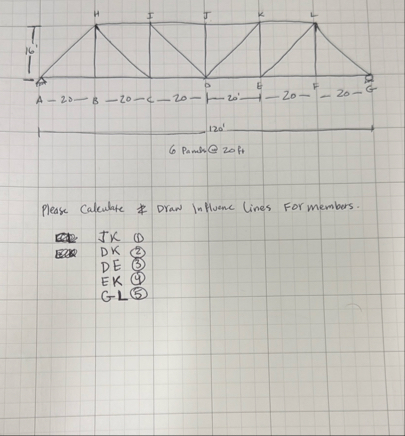 H I J K L
16'
A -20- B -20- C -20- D 20' E -20- F -20- G
120'
6 Panels @ 20ft
Please Calculate & Draw Influence Lines For members.
JK ①
DK ②
DE ③
EK ④
GL ⑤